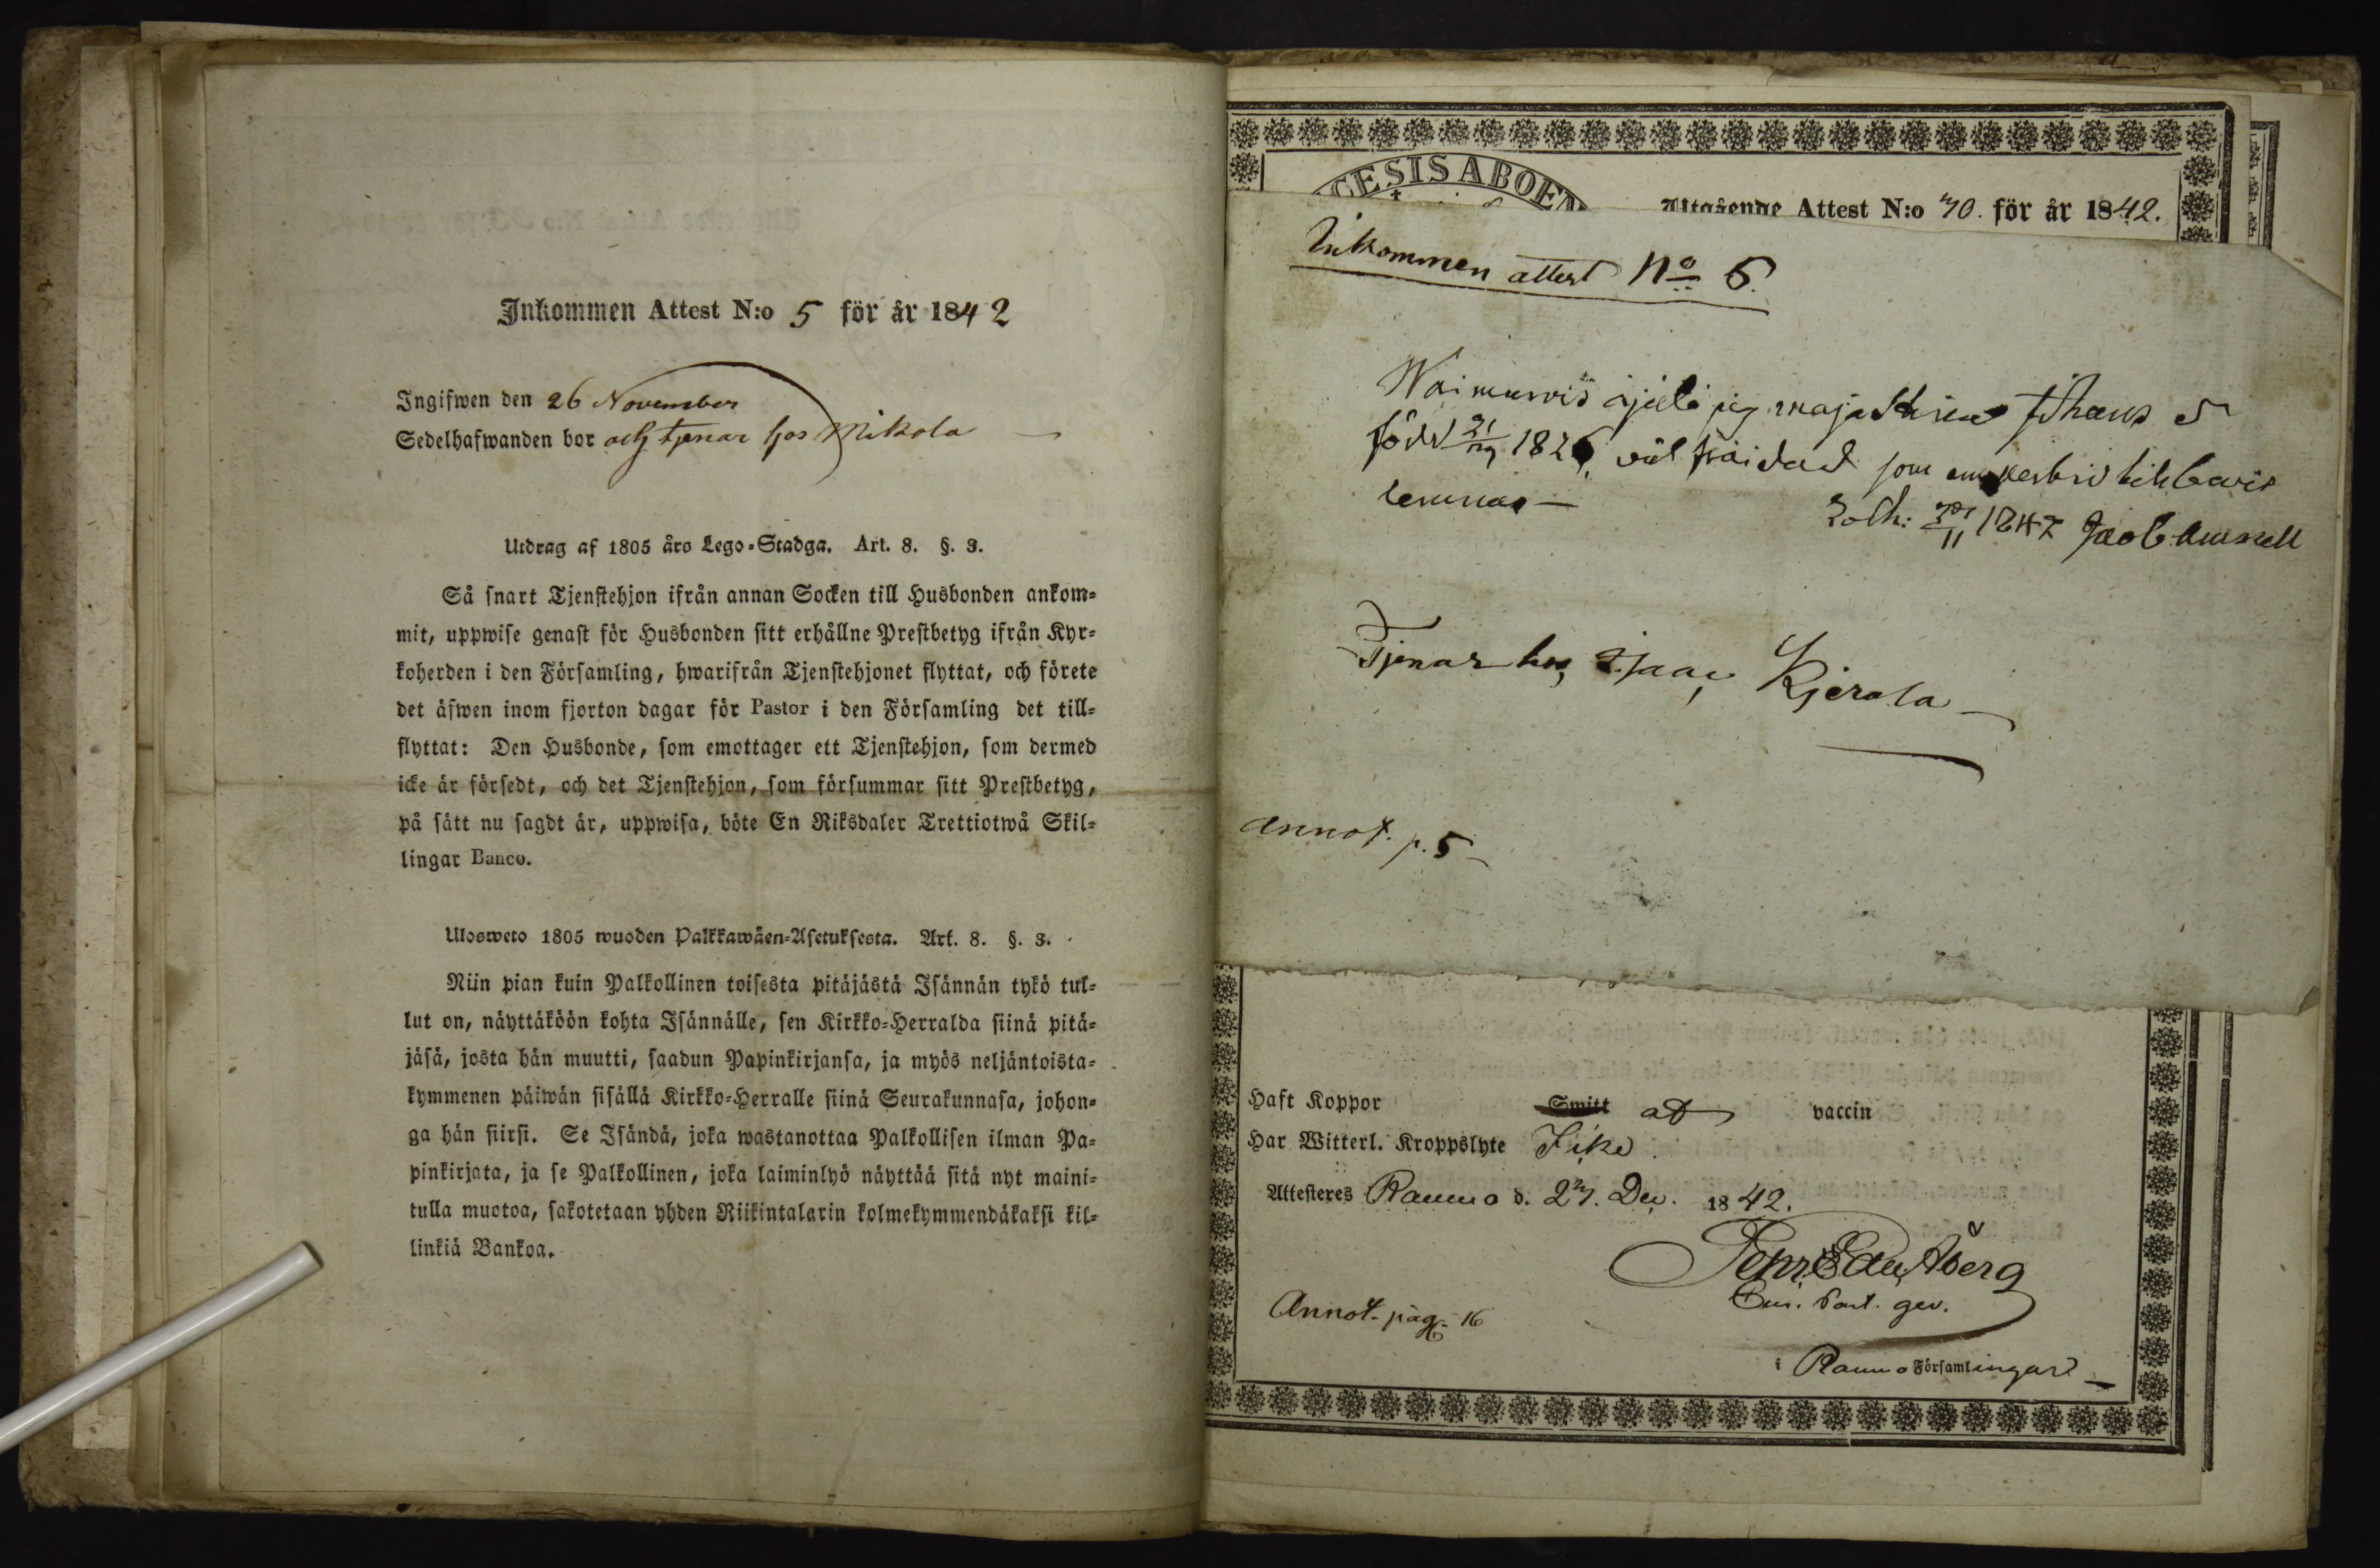 Inkommen Attest N:o 5 för år 1842
Ingifwen den 26 November
Sedelhafwanden bor och tjenar hos Mikola
Utdrag af 1805 års Lego-Stadga. Art. 8. §. 3.
Så snart Tjenstehjon ifrån annan Socken till Husbonden ankom-
mit, uppwise genast för Husbonden sitt erhållne Prestbetyg ifrån Kyr-
koherden i den Församling, hwarifrån Tjenstehjonet flyttat, och förete
det äfwen inom fjorton dagar för Pastor i den Församling det till-
flyttat: Den Husbonde, som emottager ett Tjenstehjon, som dermed
icke är försedt, och det Tjenstehjon, som försummar sitt Prestbetyg,
på sätt nu sagdt är, uppwisa, böte En Riksdaler Trettiotwå Skil-
lingar Banco.
Ulosweto 1805 wuoden Palkkawäen-Asetuksesta. Art. 8. §. 3.
Niin pian kuin Palkollinen toisesta pitäjästä Isännän tykö tul-
lut on, näyttäköön kohta Isännälle, sen Kirkko-Herralda siinä pitä-
jäsä, josta hän muutti, saadun Papinkirjansa, ja myös neljäntoista-
kymmenen päiwän sisällä Kirkko-Herralle siinä Seurakunnasa, johon-
ga hän siirsi. Se Isändä, joka wastanottaa Palkollisen ilman Pa-
pinkirjata, ja se Palkollinen, joka laiminlyö näyttää sitä nyt maini-
tulla muotoa, sakotetaan yhden Riikintalarin kolmekymmendäkaksi kil-
linkiä Bankoa.
CESIS ABOEN
Utgående Attest N:o 70. för år 1842.
Inkommen attest No 6.
född 21 1826, väl som
lemnas —
Jacob
Tjenar hos Isaac Kjerola
annot. p. 5
Haft Koppor Smitt af vaccin
Har Witterl. Kroppslyte Icke.
Attesteres Raumo d. 27. Dec. 1842.
Åberg
Annot. pag. 16
i Raumo Församlingar